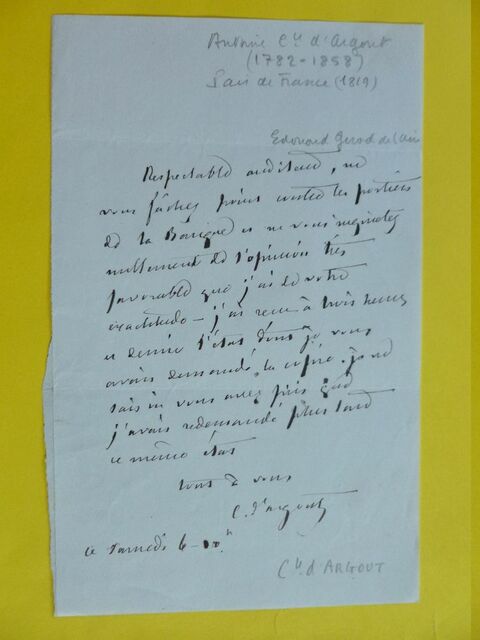 Antoine Cte d'Argout
(1782-1858)
Pair de France (1819)
Edouard Girod de l'Ain
Respectable auditeur, ne
vous fâchez point contre les portiers
de la Banque et ne vous inquietez
nullement de l'opinion très
favorable que j'ai de votre
exactitude - j'ai recu à trois heures
et demie l'état dont je vous
avais demandé la copie. je ne
sais si vous avez pris que
j'avais redemandé plus tard
ce même état
tout à vous
C. d'argout
ce samedi 6
Cte d'ARGOUT